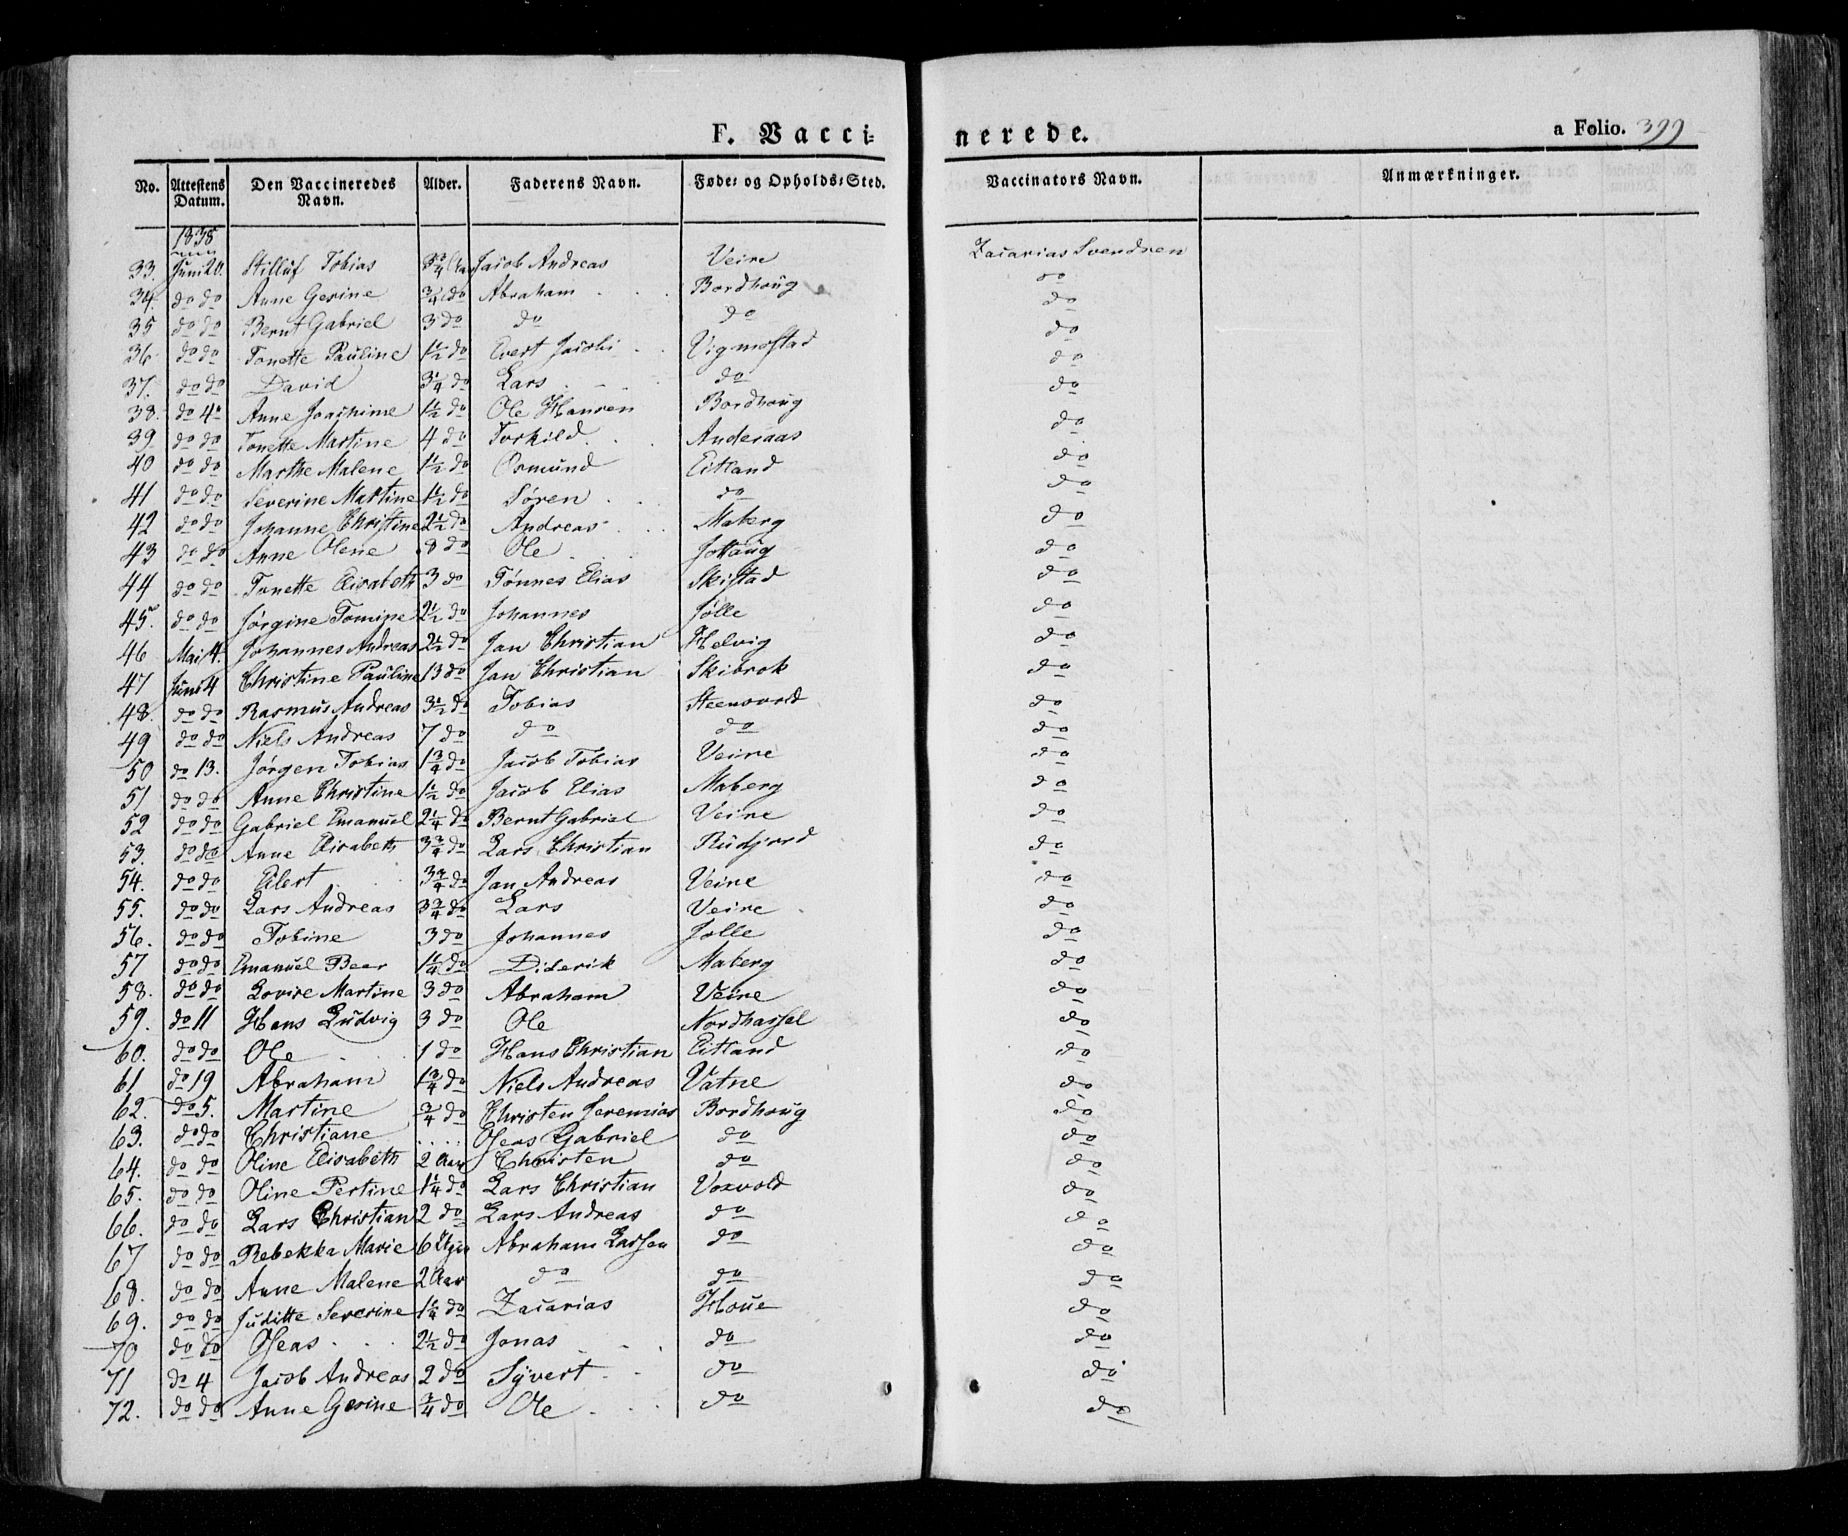 F. Vacci-nerede. a Folio. 399
No. Attestens Datum. Den Vaccineredes Navn. Alder. Faderens Navn. Føde- og Opholds-Sted. Vaccinators Navn. Anmærkninger.
1838
33. Juni 20. Tobias Jacob Andreas Veire Zacarias Svendsen
34. do do Anne Gerine 3/4 do Abraham Bordhoug do
35 do do Bernt Gabriel 3 do do do do
36 do do Tonette Pauline 1 1/2 do Evert Jacobi Vigmostad do
37. do do David 3 1/4 do Lars do do
38. do 4 Anne Joachime 1 1/2 do Ole Hansen Bordhoug do
39 do do Tonette Martine 4 do Torkild Anderaas do
40 do do Marthe Malene 1 1/2 do Osmund Eitland do
41 do do Severine Martine 1 1/2 do Søren do do
42 do do Johanne Christine 2 1/2 do Andreas Maberg do
43 do do Anne Olene 8 do Ole do
44 do do Tonette Elisabeth 3 do Tønnes Elias Skistad do
45. do do Jørgine Tomine 2 1/2 do Johannes Jølle do
46 Mai 4. Johannes Andreas 2 1/2 do Jan Christian Helvig do
47 Juni 4 Christine Pauline 13 do Jan Christian Skibrok do
48. do do Rasmus Andreas 3 1/2 do Tobias Steensvord do
49 do do Niels Andreas 7 do do do do
50 do 13. Jørgen Tobias 1 3/4 do Jacob Tobias Veire do
51 do do Anne Christine 1 1/2 do Jacob Elias Maberg do
52 do do Gabriel Emanuel 2 1/4 do Bernt Gabriel Veire do
53. do do Anne Elisabeth 3 3/4 do Lars Christian Rudjord do
54. do do Eilert 3 3/4 do Jan Andreas Veire do
55. do do Lars Andreas 3 3/4 do Lars Veire do
56. do do Tobine 3 do Johannes Jolle do
57 do do Emanuel Beer 1 1/4 do Diderik Maberg do
58. do do Lovise Martine 3 do Abraham Veire do
59. do 11 Hans Ludvig 3 do Ole Nordhassel do
60. do do Ole 1 do Hans Christian Eitland do
61 do 19 Abraham 1 3/4 do Niels Andreas Vatne do
62. do 5. Martine 3/4 do Christen Jeremias Bordhoug do
63. do do Christiane .... Oseas Gabriel do do
64. do do Oline Elisabeth 2 Aar Christen do do
65. do do Oline Pertine 1 1/4 do Lars Christian Voxvold do
66. do do Lars Christian 2 do Lars Andreas do do
67 do do Rebekka Marie 6 Abraham Lassen do do
68. do do Anne Malene 2 Aar do do do
69. do do Juditte Severine 1 1/4 do Zacarias Houe do
70 do do Oseas 2 1/2 do Jonas do do
71 do 4 Jacob Andreas 2 do Syvert do do
72. do do Anne Gesine 3/4 do Ole do do